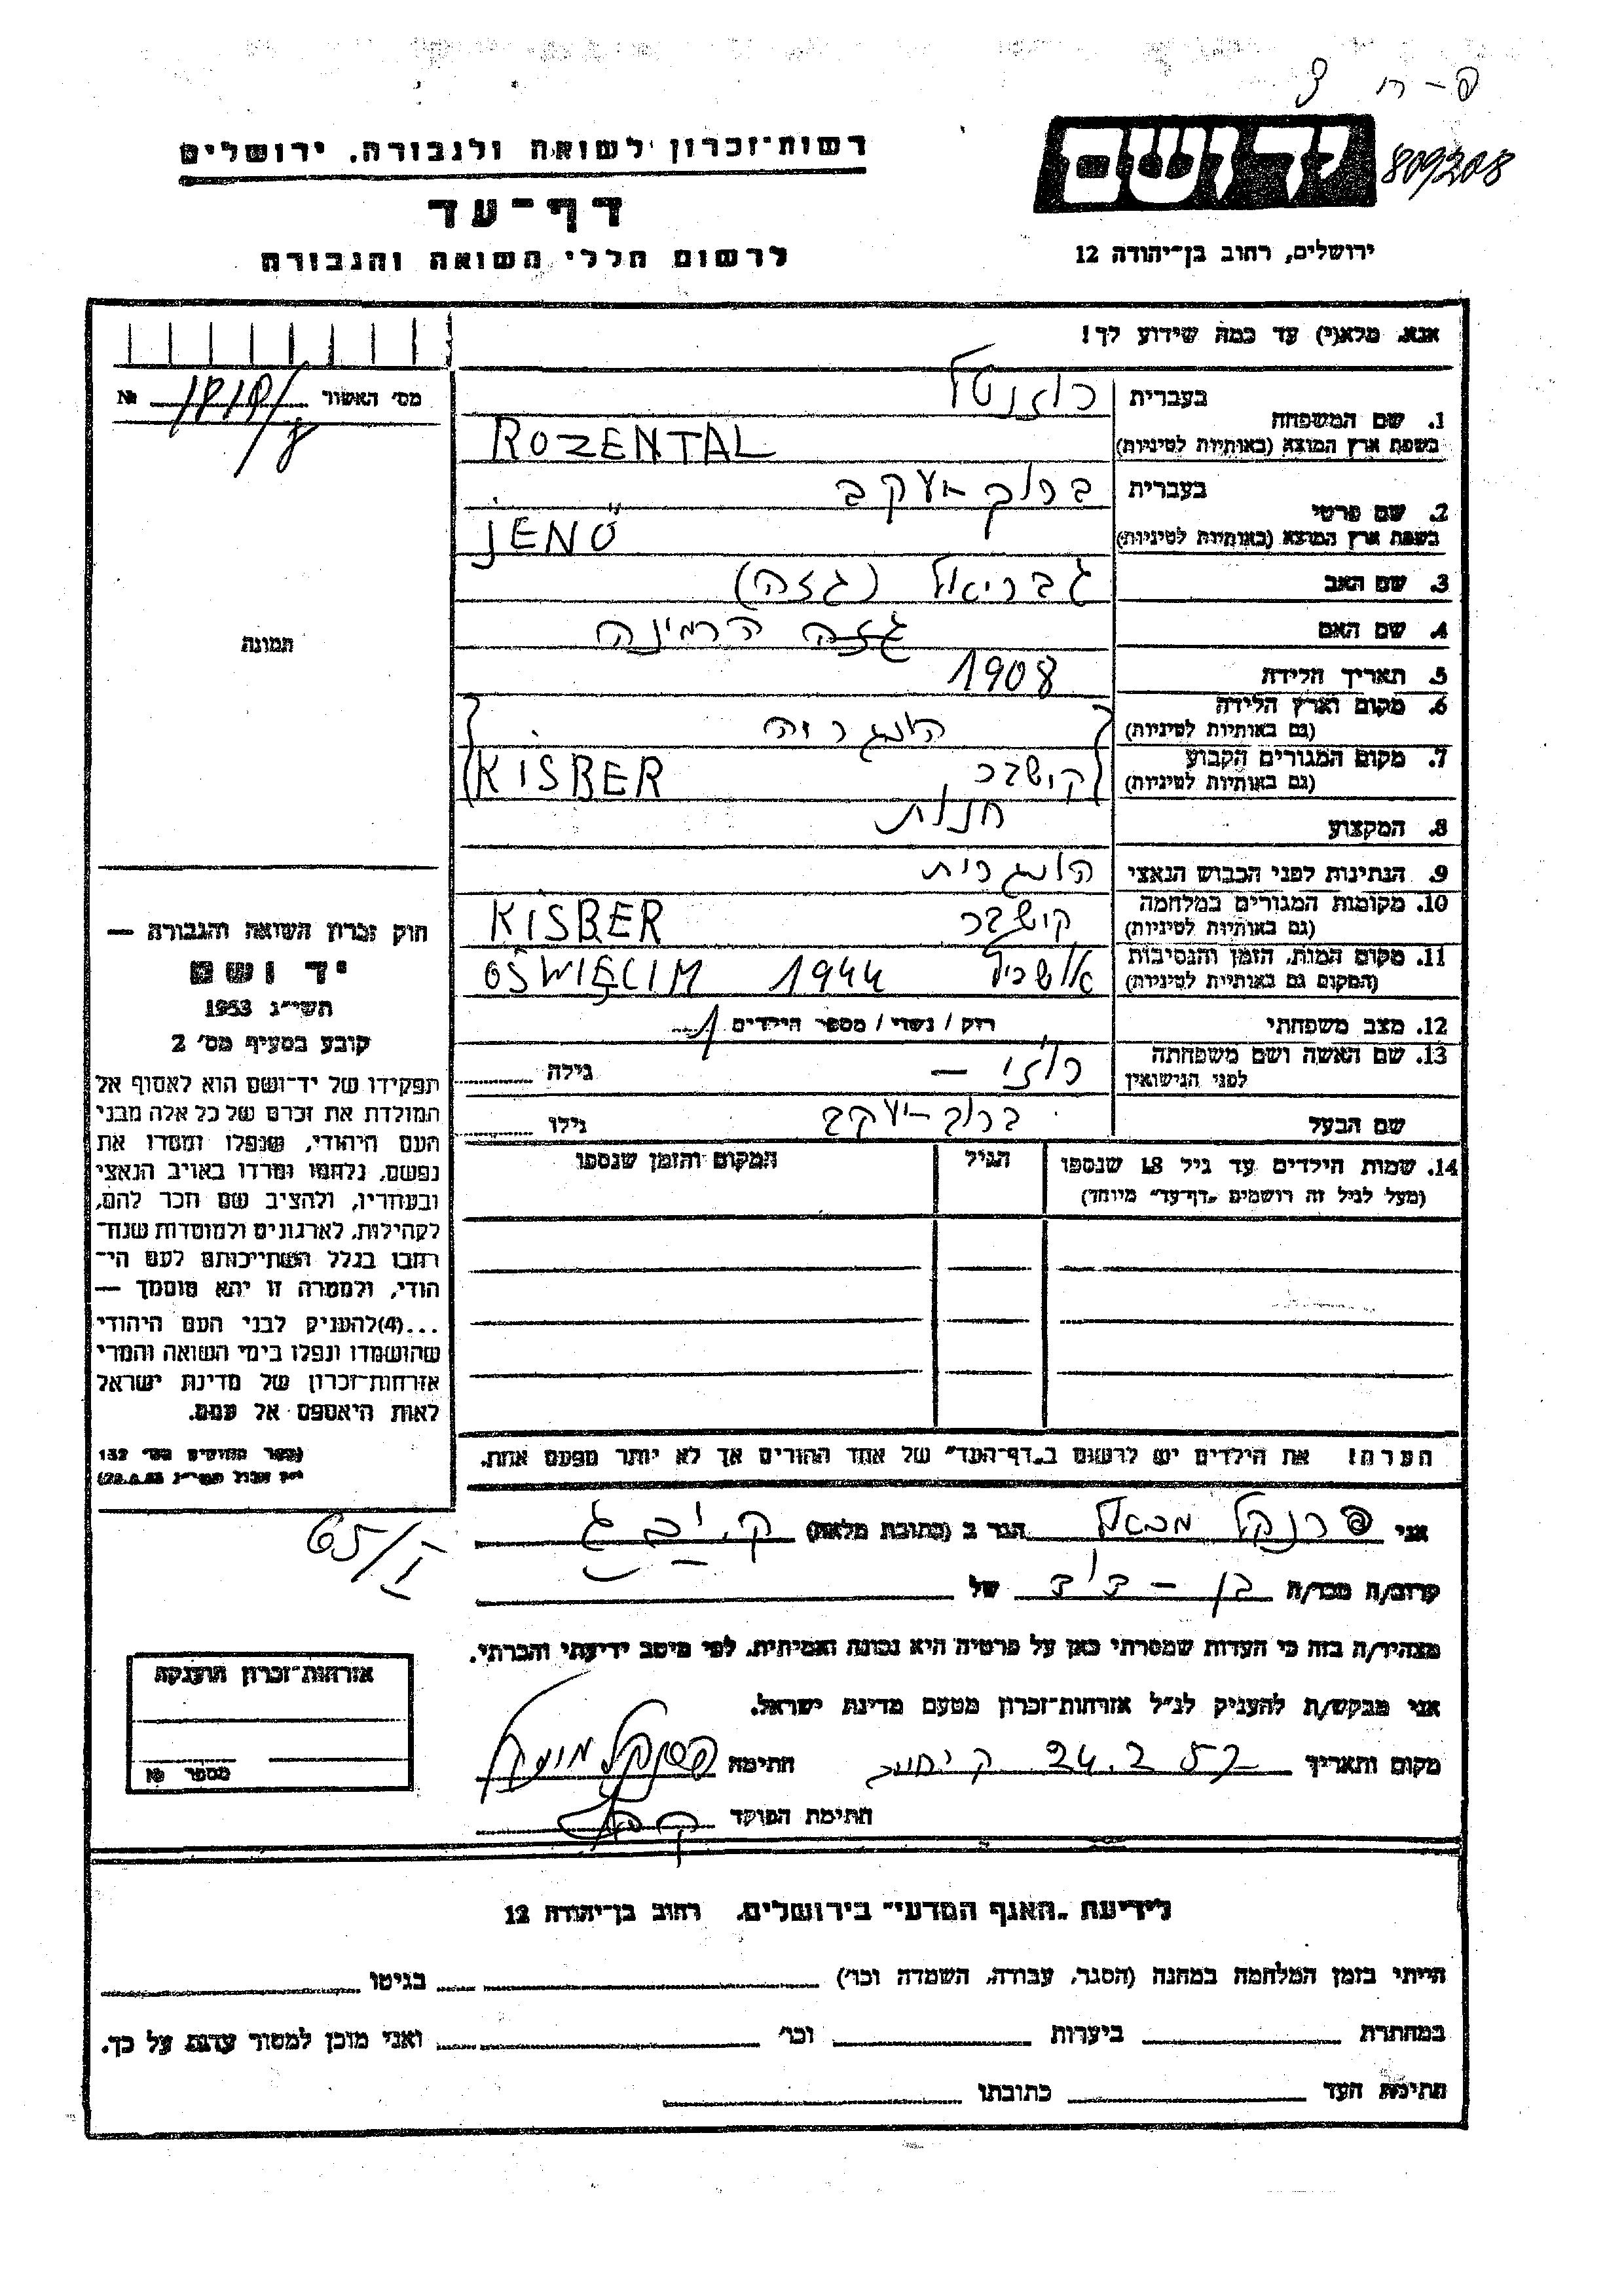 פ-ח 3
יד ושם 809208
רשות־זכרון לשואה ולגבורה, ירושלים
דף־עד
לרשום חללי השואה והגבורה
ירושלים, רחוב בן־יהודה 12
אנא, מלא(י) עד כמה שידוע לך!
מס' האשור №
1. שם המשפחה בעברית רוזנטל
בשפת ארץ המוצא (באותיות לטיניות) ROZENTAL
2. שם פרטי בעברית ברוך יעקב
בשפת ארץ המוצא (באותיות לטיניות) JENŐ
3. שם האב גבריאל (גזה)
4. שם האם גזה הרמינה
5. תאריך הלידה 1908
6. מקום וארץ הלידה הונגריה
(גם באותיות לטיניות)
7. מקום המגורים הקבוע קישבר KISBER
(גם באותיות לטיניות)
8. המקצוע חנות
9. הנתינות לפני הכבוש הנאצי הונגרית
10. מקומות המגורים במלחמה קישבר KISBER
(גם באותיות לטיניות)
11. מקום המות, הזמן והנסיבות אושביץ 1944 OŚWIĘCIM
(המקום גם באותיות לטיניות)
12. מצב משפחתי רווק / נשוי / מספר הילדים 1
13. שם האשה ושם משפחתה לפני הנישואין רוזי — גילה
שם הבעל ברוך-יעקב גילו
14. שמות הילדים עד גיל 18 שנספו הגיל המקום והזמן שנספו
(מעל לגיל זה רושמים „דף־עד" מיוחד)
הערה! את הילדים יש לרשום ב„דף־העד" של אחד ההורים אך לא יותר מפעם אחת.
תמונה
חוק זכרון השואה והגבורה —
יד ושם
תשי"ג 1953
קובע בסעיף מס' 2
תפקידו של יד־ושם הוא לאסוף אל
המולדת את זכרם של כל אלה מבני
העם היהודי, שנפלו ומסרו את
נפשם, נלחמו ומרדו באויב הנאצי
ובעוזריו, ולהציב שם וזכר להם,
לקהילות, לארגונים ולמוסדות שנח־
רבו בגלל השתייכותם לעם הי־
הודי, ולמטרה זו יהא מוסמך —
...(4) להעניק לבני העם היהודי
שהושמדו ונפלו בימי השואה והמרי
אזרחות־זכרון של מדינת ישראל
לאות היאספם אל עמם.
(ספר החוקים מס' 132
65/I
אני פרנקל הגר ב (כתובת מלאה)
קרוב/ה מכר/ה בן-דוד של
מצהיר/ה בזה כי העדות שמסרתי כאן על פרטיה היא נכונה ואמיתית, לפי מיטב ידיעתי והכרתי.
אני מבקש/ת להעניק לנ"ל אזרחות־זכרון מטעם מדינת ישראל.
מקום ותאריך 24.2.57 חתימה
חתימת הפוקד
אזרחות־זכרון הוענקה
מספר №
לידיעת „האגף המדעי" בירושלים, רחוב בן־יהודה 12
הייתי בזמן המלחמה במחנה (הסגר, עבודה, השמדה וכו') בגיטו
במחתרת ביערות וכו' ואני מוכן למסור עדות על כך.
חתימת העד כתובתו